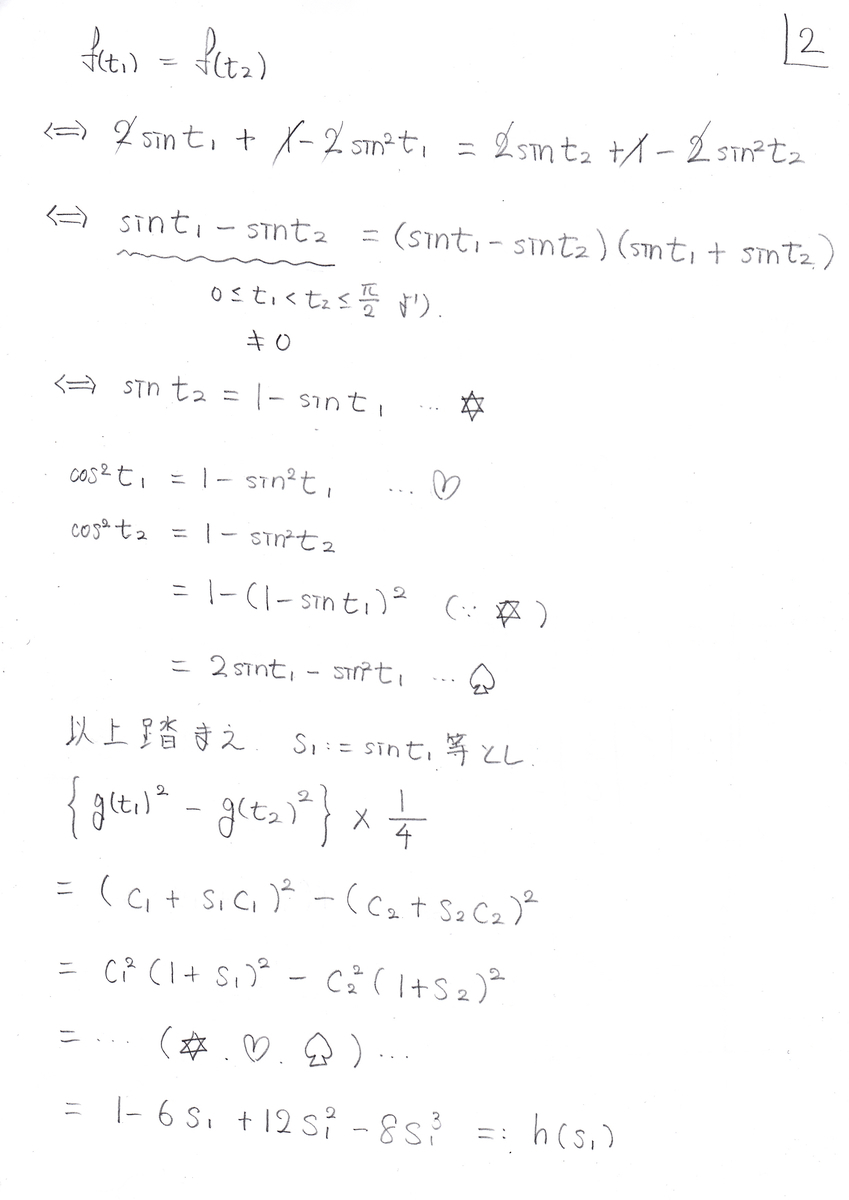 2
f(t₁) = f(t₂)
⇔ 2sint₁ + 1 - 2sin²t₁ = 2sint₂ + 1 - 2sin²t₂
⇔ sint₁ - sint₂ = (sint₁ - sint₂)(sint₁ + sint₂)
0 ≤ t₁ < t₂ ≤ π/2 より.
≠ 0
⇔ sin t₂ = 1 - sin t₁ … ✡
cos²t₁ = 1 - sin²t₁ … ♡
cos²t₂ = 1 - sin²t₂
= 1 - (1 - sin t₁)² (∵ ✡)
= 2sint₁ - sin²t₁ … ♤
以上踏まえ. S₁ := sint₁ 等とし.
{g(t₁)² - g(t₂)²} × 1/4
= (C₁ + S₁C₁)² - (C₂ + S₂C₂)²
= C₁²(1 + S₁)² - C₂²(1 + S₂)²
= … (✡.♡.♤) …
= 1 - 6S₁ + 12S₁² - 8S₁³ =: h(S₁)